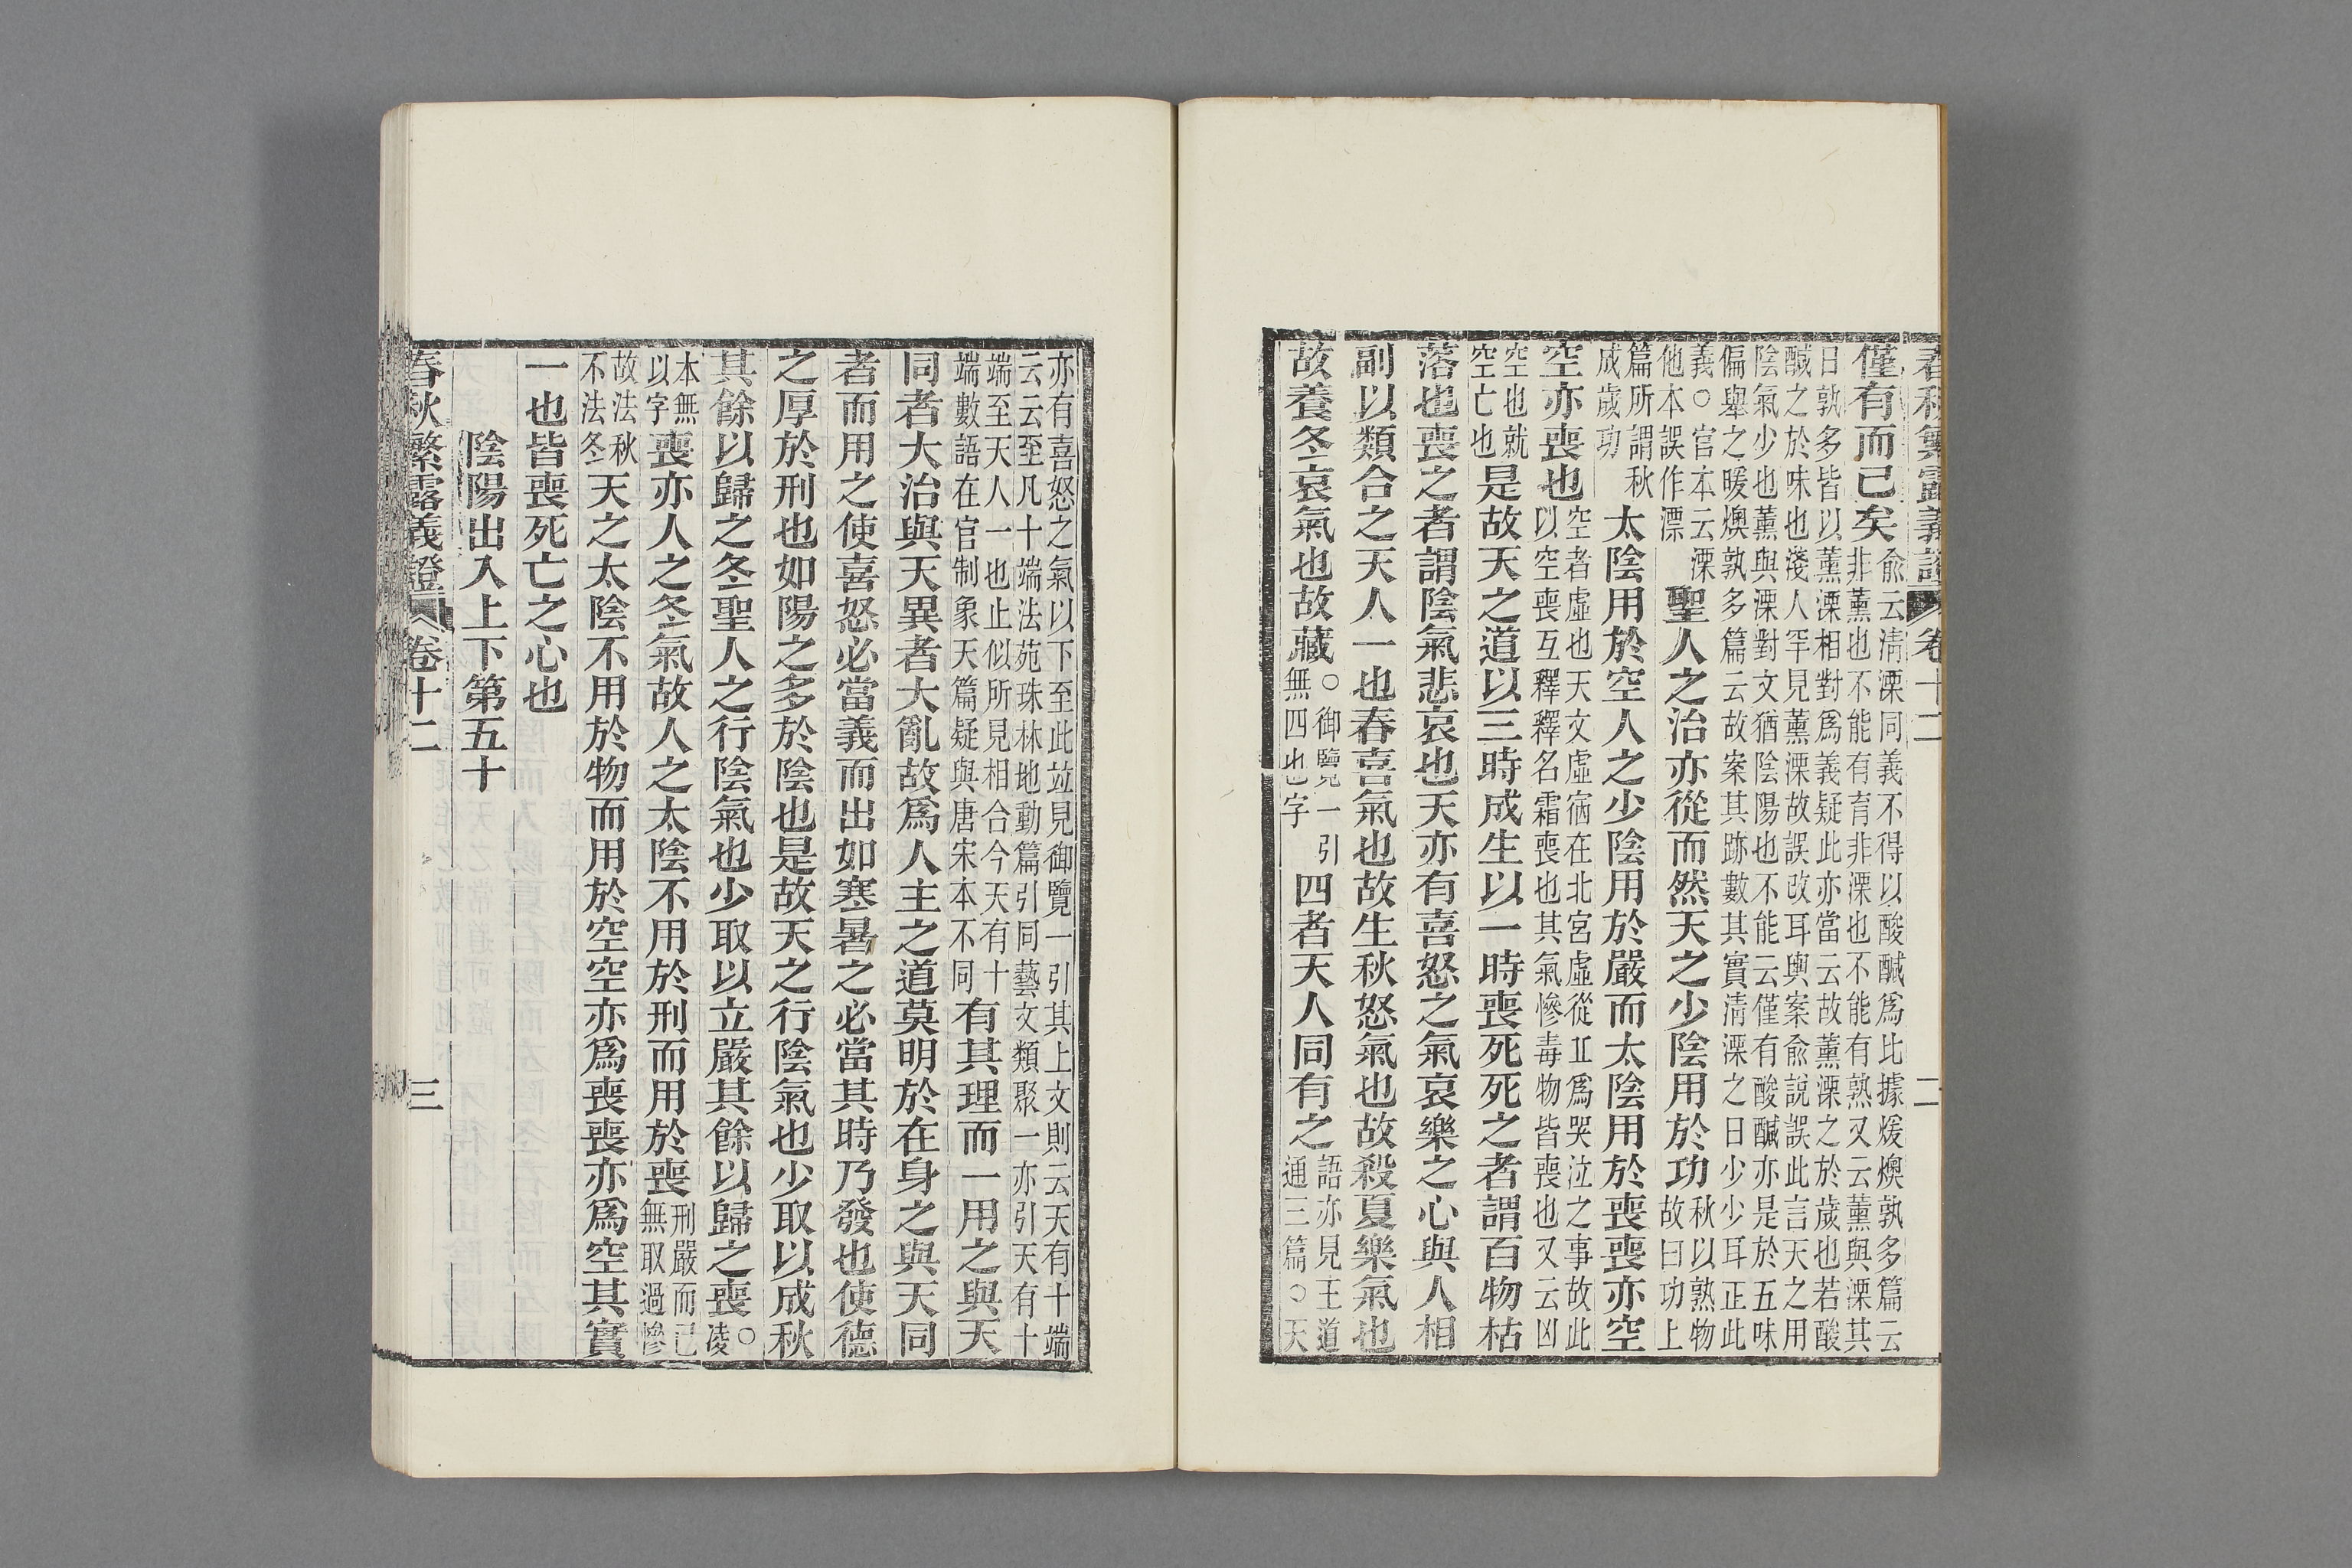 春秋繁露義證 卷十二 二
僅有而已矣兪云清溧同義不得以酸醎爲比據煖燠孰多篇云非薰也不能有育非溧也不能有熟又云薰與溧其
日孰多皆以薰溧相對爲義疑此亦當云故薰溧之於歲也若酸醎之於味也淺人罕見薰溧故誤改耳輿案兪説誤此言天之用
陰氣少也薰與溧對文猶陰陽也不能云僅有酸醎亦是於五味偏舉之暖燠孰多篇云故案其跡數其實清溧之日少少耳正此
義○官本云溧他本誤作漂聖人之治亦從而然天之少陰用於功秋以熟物故曰功上
篇所謂秋成歲功太陰用於空人之少陰用於嚴而太陰用於喪喪亦空
空亦喪也空者虛也天文虛宿在北宮虛從丠爲哭泣之事故此以空喪互釋釋名霜喪也其氣慘毒物皆喪也又云凶
空也就空亡也是故天之道以三時成生以一時喪死死之者謂百物枯
落也喪之者謂陰氣悲哀也天亦有喜怒之氣哀樂之心與人相
副以類合之天人一也春喜氣也故生秋怒氣也故殺夏樂氣也
故養冬哀氣也故藏○御覽一引無四也字四者天人同有之語亦見王道通三篇○天
亦有喜怒之氣以下至此竝見御覽一引其上文則云天有十端云云至凡十端法苑珠林地動篇引同藝文類聚一亦引天有十
端至天人一也止似所見相合今天有十端數語在官制象天篇疑與唐宋本不同有其理而一用之與天
同者大治與天異者大亂故爲人主之道莫明於在身之與天同
者而用之使喜怒必當義而出如寒暑之必當其時乃發也使德
之厚於刑也如陽之多於陰也是故天之行陰氣也少取以成秋
其餘以歸之冬聖人之行陰氣也少取以立嚴其餘以歸之喪○凌
本無以字喪亦人之冬氣故人之太陰不用於刑而用於喪刑嚴而已無取過慘
故法秋不法冬天之太陰不用於物而用於空空亦爲喪喪亦爲空其實
一也皆喪死亡之心也
陰陽出入上下第五十
春秋繁露義證 卷十二 三